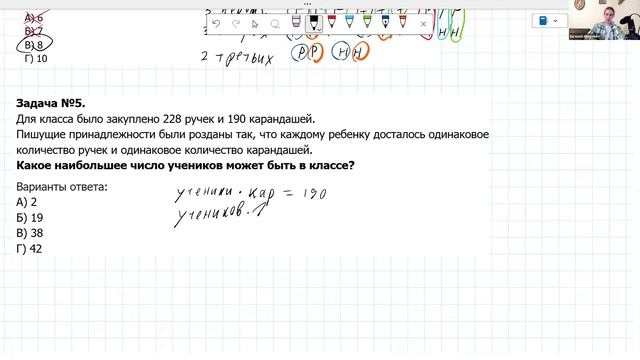 А) 6
Б) 7
В) 8
Г) 10
2 третьих Р Р Н Н
Задача №5.
Для класса было закуплено 228 ручек и 190 карандашей.
Пишущие принадлежности были розданы так, что каждому ребенку досталось одинаковое
количество ручек и одинаковое количество карандашей.
Какое наибольшее число учеников может быть в классе?
Варианты ответа:
А) 2
Б) 19
В) 38
Г) 42
ученики · кар = 190
учеников ·